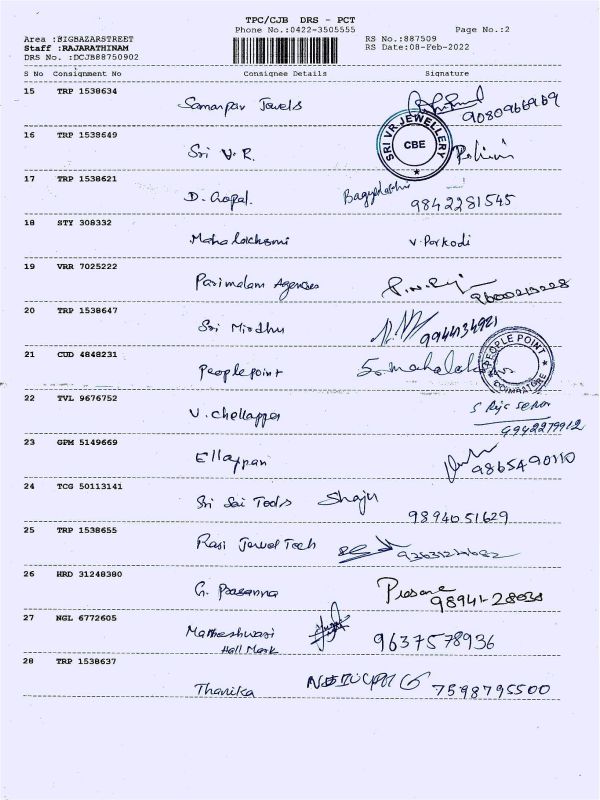 TPC/CJB DRS - PCT
Phone No.:0422-3505555
Page No.:2
Area :BIGBAZARSTREET
RS No.:887509
Staff :RAJARATHINAM
RS Date:08-Feb-2022
DRS No. :DCJB88750902
S No Consignment No Consignee Details Signature
15 TRP 1538634
Samarpav Jewels
9080966969
16 TRP 1538649
Sri V.R.
SRI VR JEWELLERY
CBE
17 TRP 1538621
D. Gopal. 9842281545
18 STY 308332
Mahalakshmi V. Porkodi
19 VRR 7025222
Parimalam Agencies
20 TRP 1538647
Sri Mirdhu 9944134921
21 CUD 4848231
Peoplepoint S. mahalak
PEOPLE POINT
COIMBATORE
22 TVL 9676752
V. chellappa
9942279912
23 GPM 5149669
Ellappan 9865490110
24 TCG 50113141
Sri Sai Tools Shaju
9894051629
25 TRP 1538655
Rasi Jewel Tech
26 HRD 31248380
G. Prasanna
27 NGL 6772605
Maheshwari 9637578936
Hall Mark
28 TRP 1538637
Thanika 7598795500